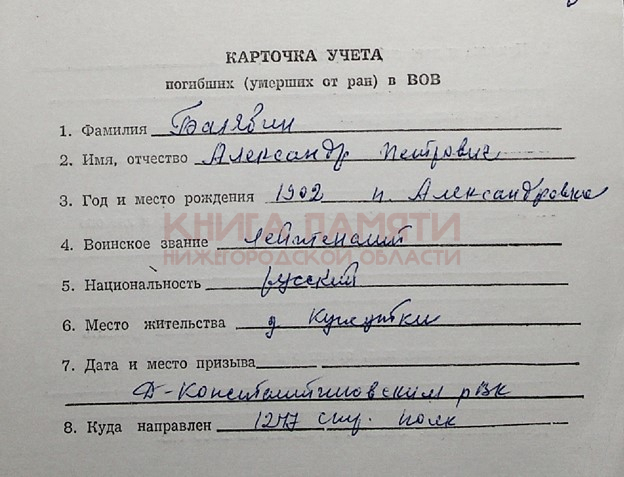 КАРТОЧКА УЧЕТА
погибших (умерших от ран) в ВОВ
1. Фамилия Балябин
2. Имя, отчество Александр Петрович
3. Год и место рождения 1902 п. Александровка
КНИГА ПАМЯТИ
4. Воинское звание лейтенант
НИЖЕГОРОДСКОЙ ОБЛАСТИ
5. Национальность русский
6. Место жительства д
7. Дата и место призыва
Д-Константиновским рВК
8. Куда направлен 1277 стр. полк